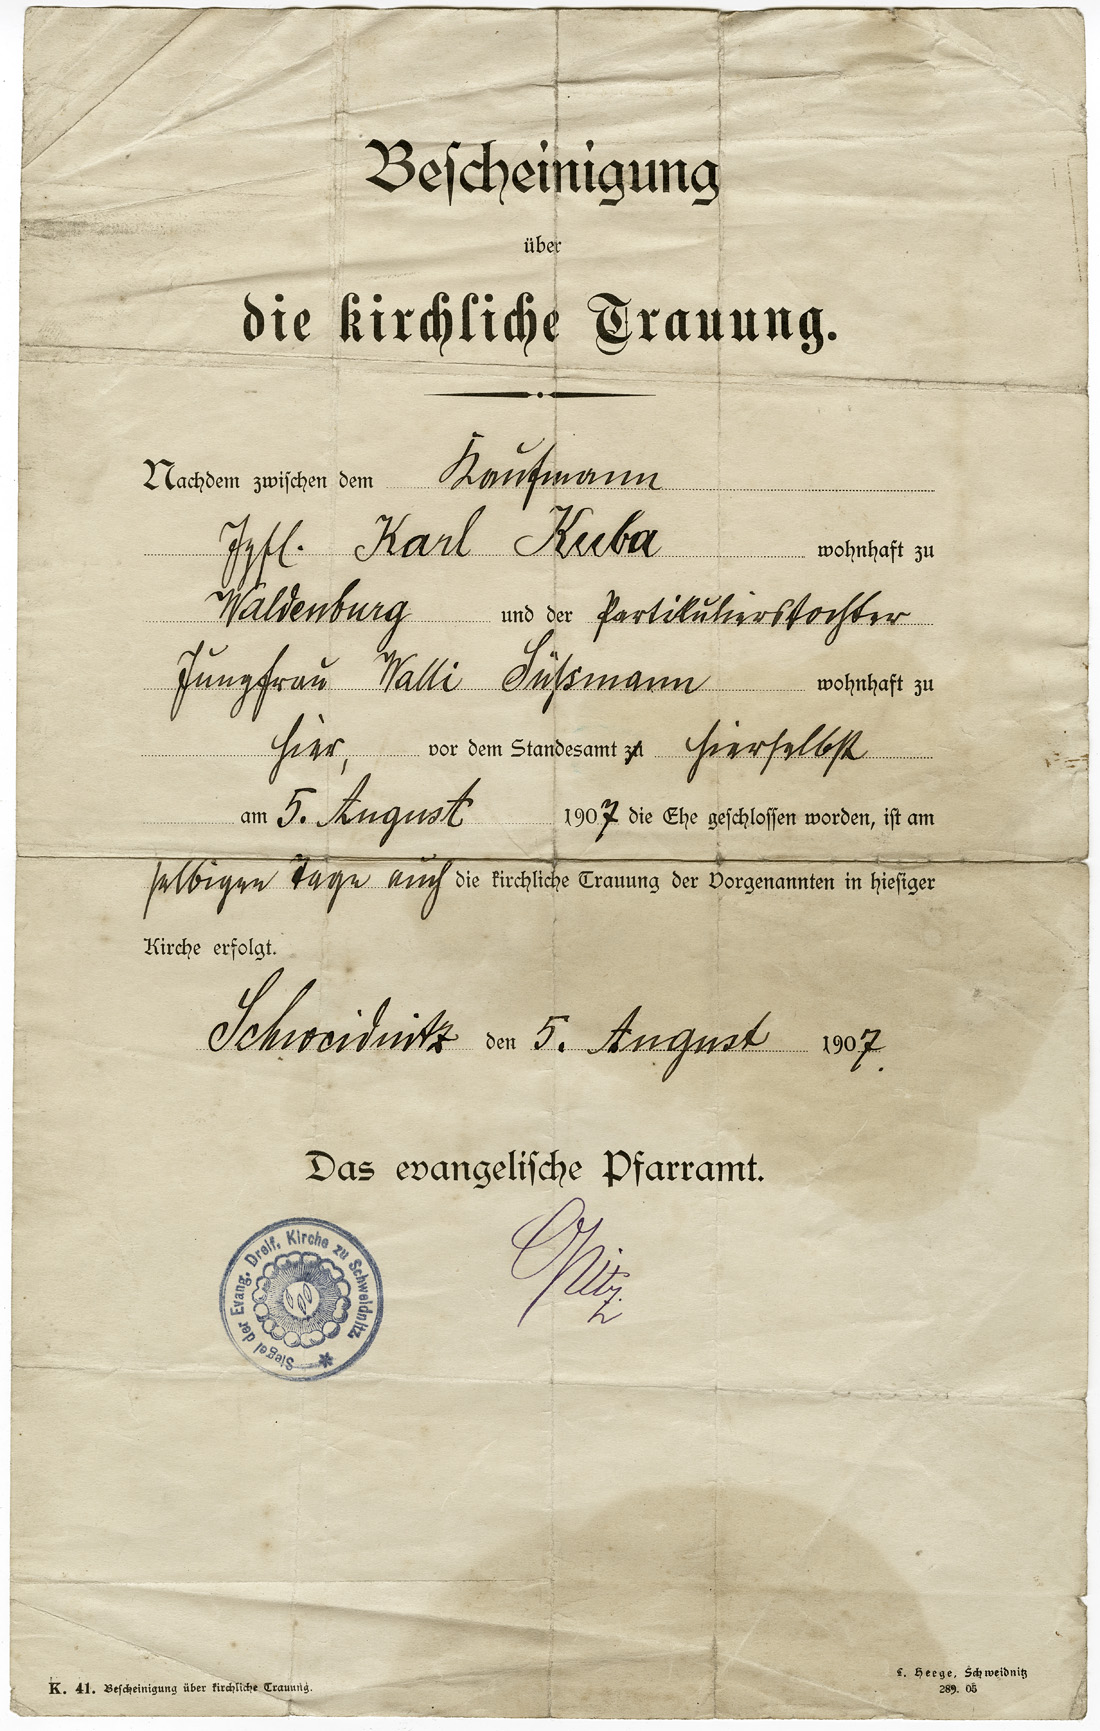 Bescheinigung
über
die kirchliche Trauung.
Nachdem zwischen dem Kaufmann
Jgfl. Karl Kuba wohnhaft zu
Waldenburg und der Partikulierstochter
Jungfrau Walli Süßmann wohnhaft zu
hier, vor dem Standesamt zu hierselbst
am 5. August 1907 die Ehe geschlossen worden, ist am
selbigen Tage auch die kirchliche Trauung der Vorgenannten in hiesiger
Kirche erfolgt.
Schweidnitz den 5. August 1907.
Das evangelische Pfarramt.
Siegel der Evang. Dreif. Kirche zu Schweidnitz.
Opitz.
K. 41. Bescheinigung über kirchliche Trauung.
L. Heege, Schweidnitz
289. 05